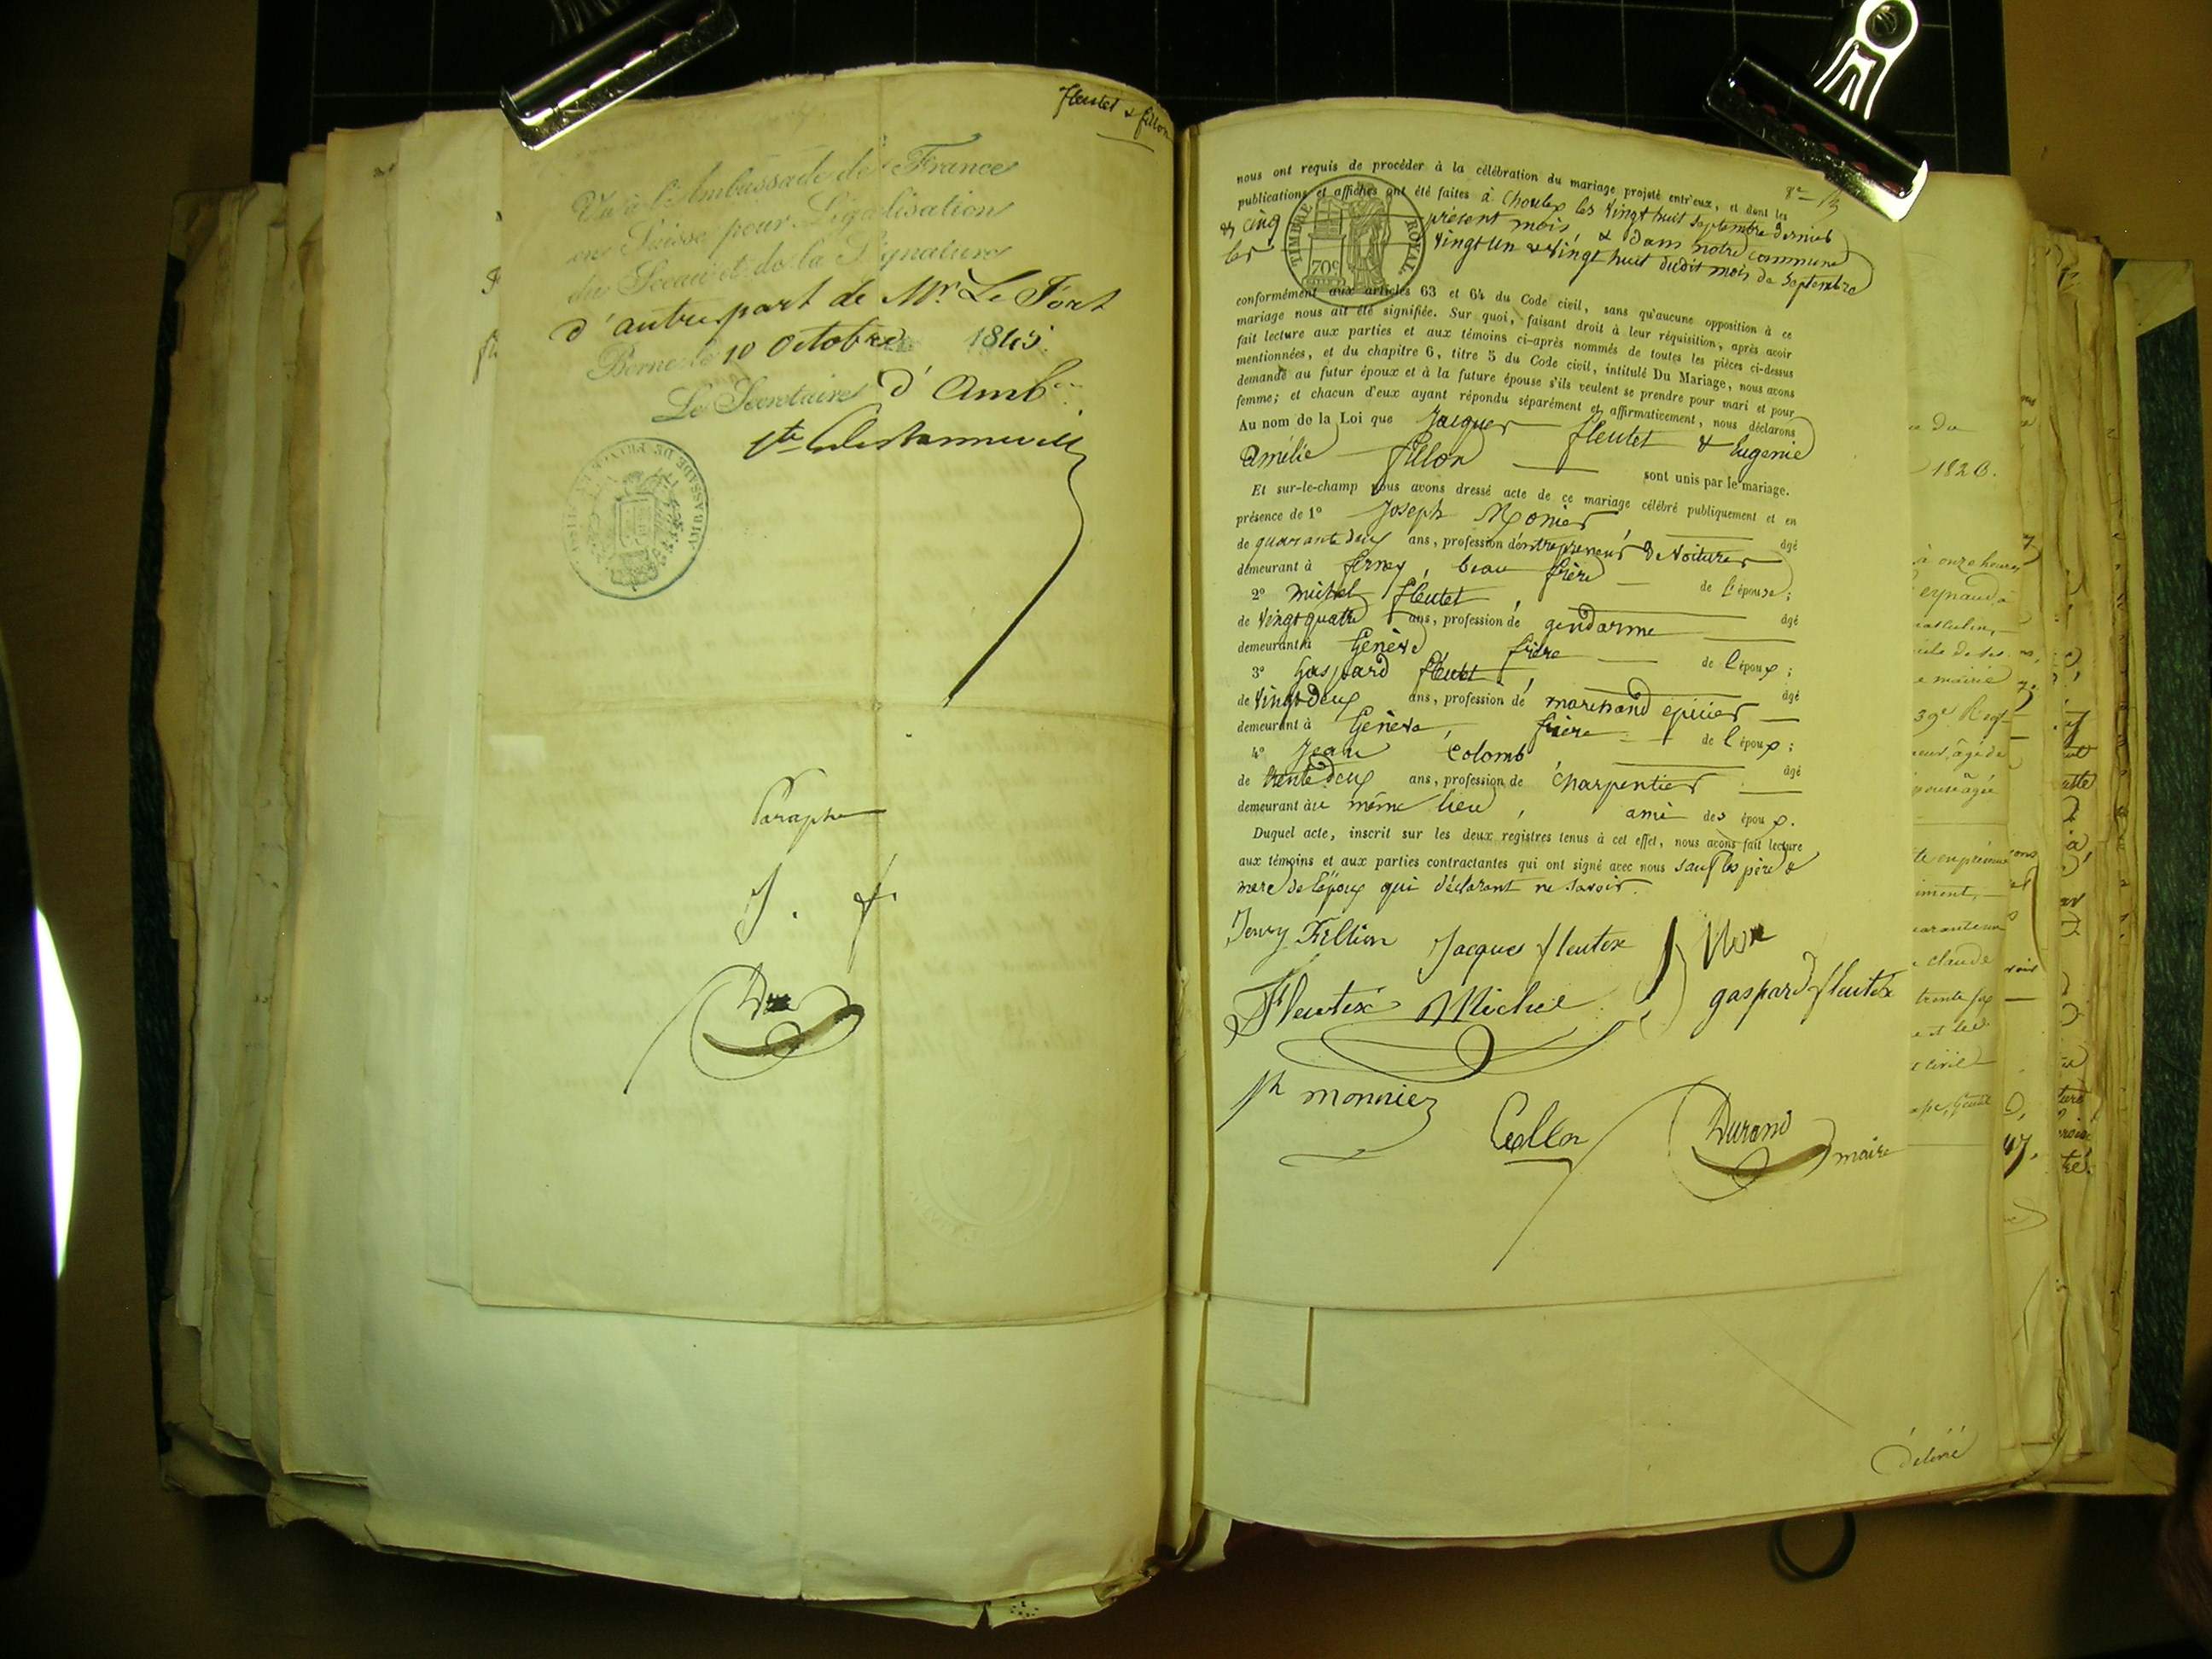 fleutet & fillon
Vu à l'Ambassade de France
en Suisse pour Légalisation
du Sceau et de la Signature
d'autre part de Mr. Le Fort
Berne le 10 Octobre 1845.
Le Secrétaire d'Amb.
AMBASSADE DE FRANCE EN
Paraphé
J. f.
nous ont requis de procéder à la célébration du mariage projeté entr'eux, et dont les
publications et affiches ont été faites à Choulex les Vingt huit Septembre dernier
& cinq présent mois, & dans notre commune
les Vingt Un & Vingt huit dudit mois de Septembre
TIMBRE ROYAL.
70c
conformément aux articles 63 et 64 du Code civil, sans qu'aucune opposition à ce
mariage nous ait été signifiée. Sur quoi, faisant droit à leur réquisition, après avoir
fait lecture aux parties et aux témoins ci-après nommés de toutes les pièces ci-dessus
mentionnées, et du chapitre 6, titre 5 du Code civil, intitulé Du Mariage, nous avons
demandé au futur époux et à la future épouse s'ils veulent se prendre pour mari et pour
femme; et chacun d'eux ayant répondu séparément et affirmativement, nous déclarons
Au nom de la Loi que Jacques fleutet & Eugenie
Amélie fillon sont unis par le mariage.
Et sur-le-champ nous avons dressé acte de ce mariage célébré publiquement et en
présence de 1° Joseph Monier âgé
de quarante deux ans, profession d'entrepreneur de Voitures
demeurant à ferney, beau frère de l'épouse;
2° michel fleutet, âgé
de Vingt quatre ans, profession de gendarme
demeurant à Genève frère de l'époux;
3° Gaspard fleutet, âgé
de Vingt Deux ans, profession de marchand epicier
demeurant à Genève, frère de l'époux;
4° Jean Colomb âgé
de trente deux ans, profession de charpentier
demeurant au même lieu, ami des époux.
Duquel acte, inscrit sur les deux registres tenus à cet effet, nous avons fait lecture
aux témoins et aux parties contractantes qui ont signé avec nous sauf les père &
mere de l'époux qui déclarent ne savoir.
Jenny Fillion Jacques fleutex
Fleutex Michel gaspard fleutex
Jh monnier
Durand maire
délivré
1820.
à onze heures
39e Regt
claude